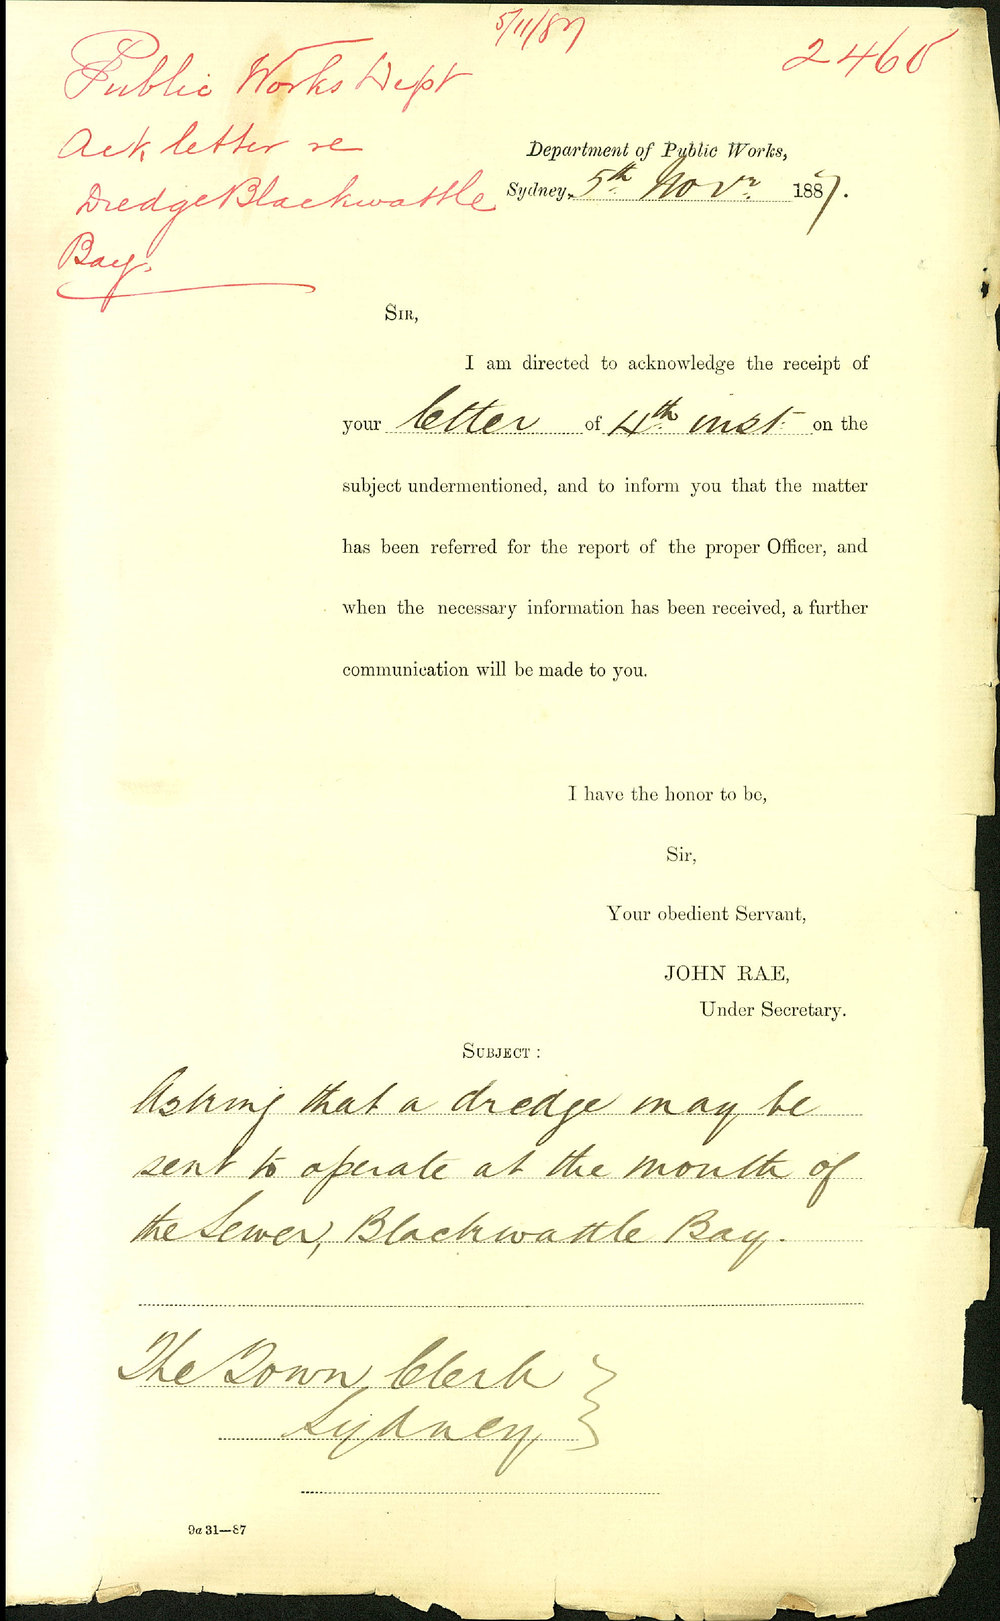 5/11/87
2465
Public Works Dept
Ack letter re
Dredge Blackwattle
Bay.
Department of Public Works,
Sydney, 5th Novr. 1887.
SIR,
I am directed to acknowledge the receipt of
your letter of 4th inst on the
subject undermentioned, and to inform you that the matter
has been referred for the report of the proper Officer, and
when the necessary information has been received, a further
communication will be made to you.
I have the honor to be,
Sir,
Your obedient Servant,
JOHN RAE,
Under Secretary.
SUBJECT :
Asking that a dredge may be
sent to operate at the mouth of
the Sewer, Blackwattle Bay.
The Town Clerk
Sydney
9a 31—87